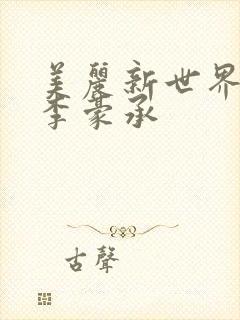 美麗新世界
李豪承
古聲